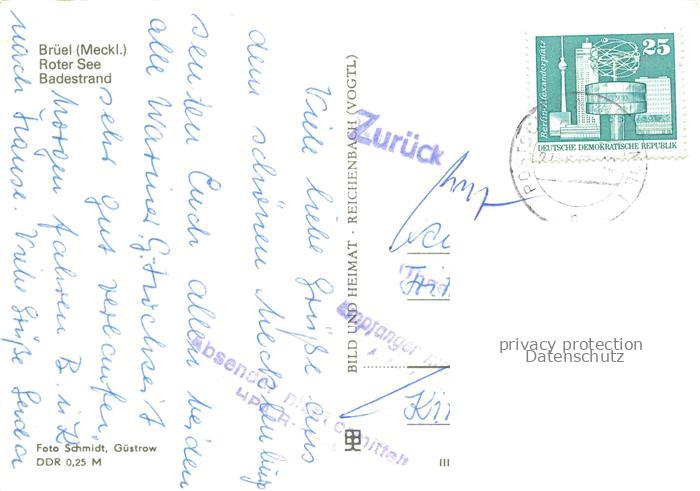 Brüel (Meckl.)
Roter See
Badestrand
Viele liebe Grüße aus
dem schönen Mecklenburg
senden Euch allen beiden
alle Wariner
sehr gut verlaufen.
Morgen fahren B. u.
nach Hause. Viele Grüße
Foto Schmidt, Güstrow
DDR 0,25 M
BILD UND HEIMAT · REICHENBACH (VOGTL)
Zurück
Empfänger
Absender nicht ermittelt
III
25
Berlin-Alexanderplatz
DEUTSCHE DEMOKRATISCHE REPUBLIK
privacy protection
Datenschutz